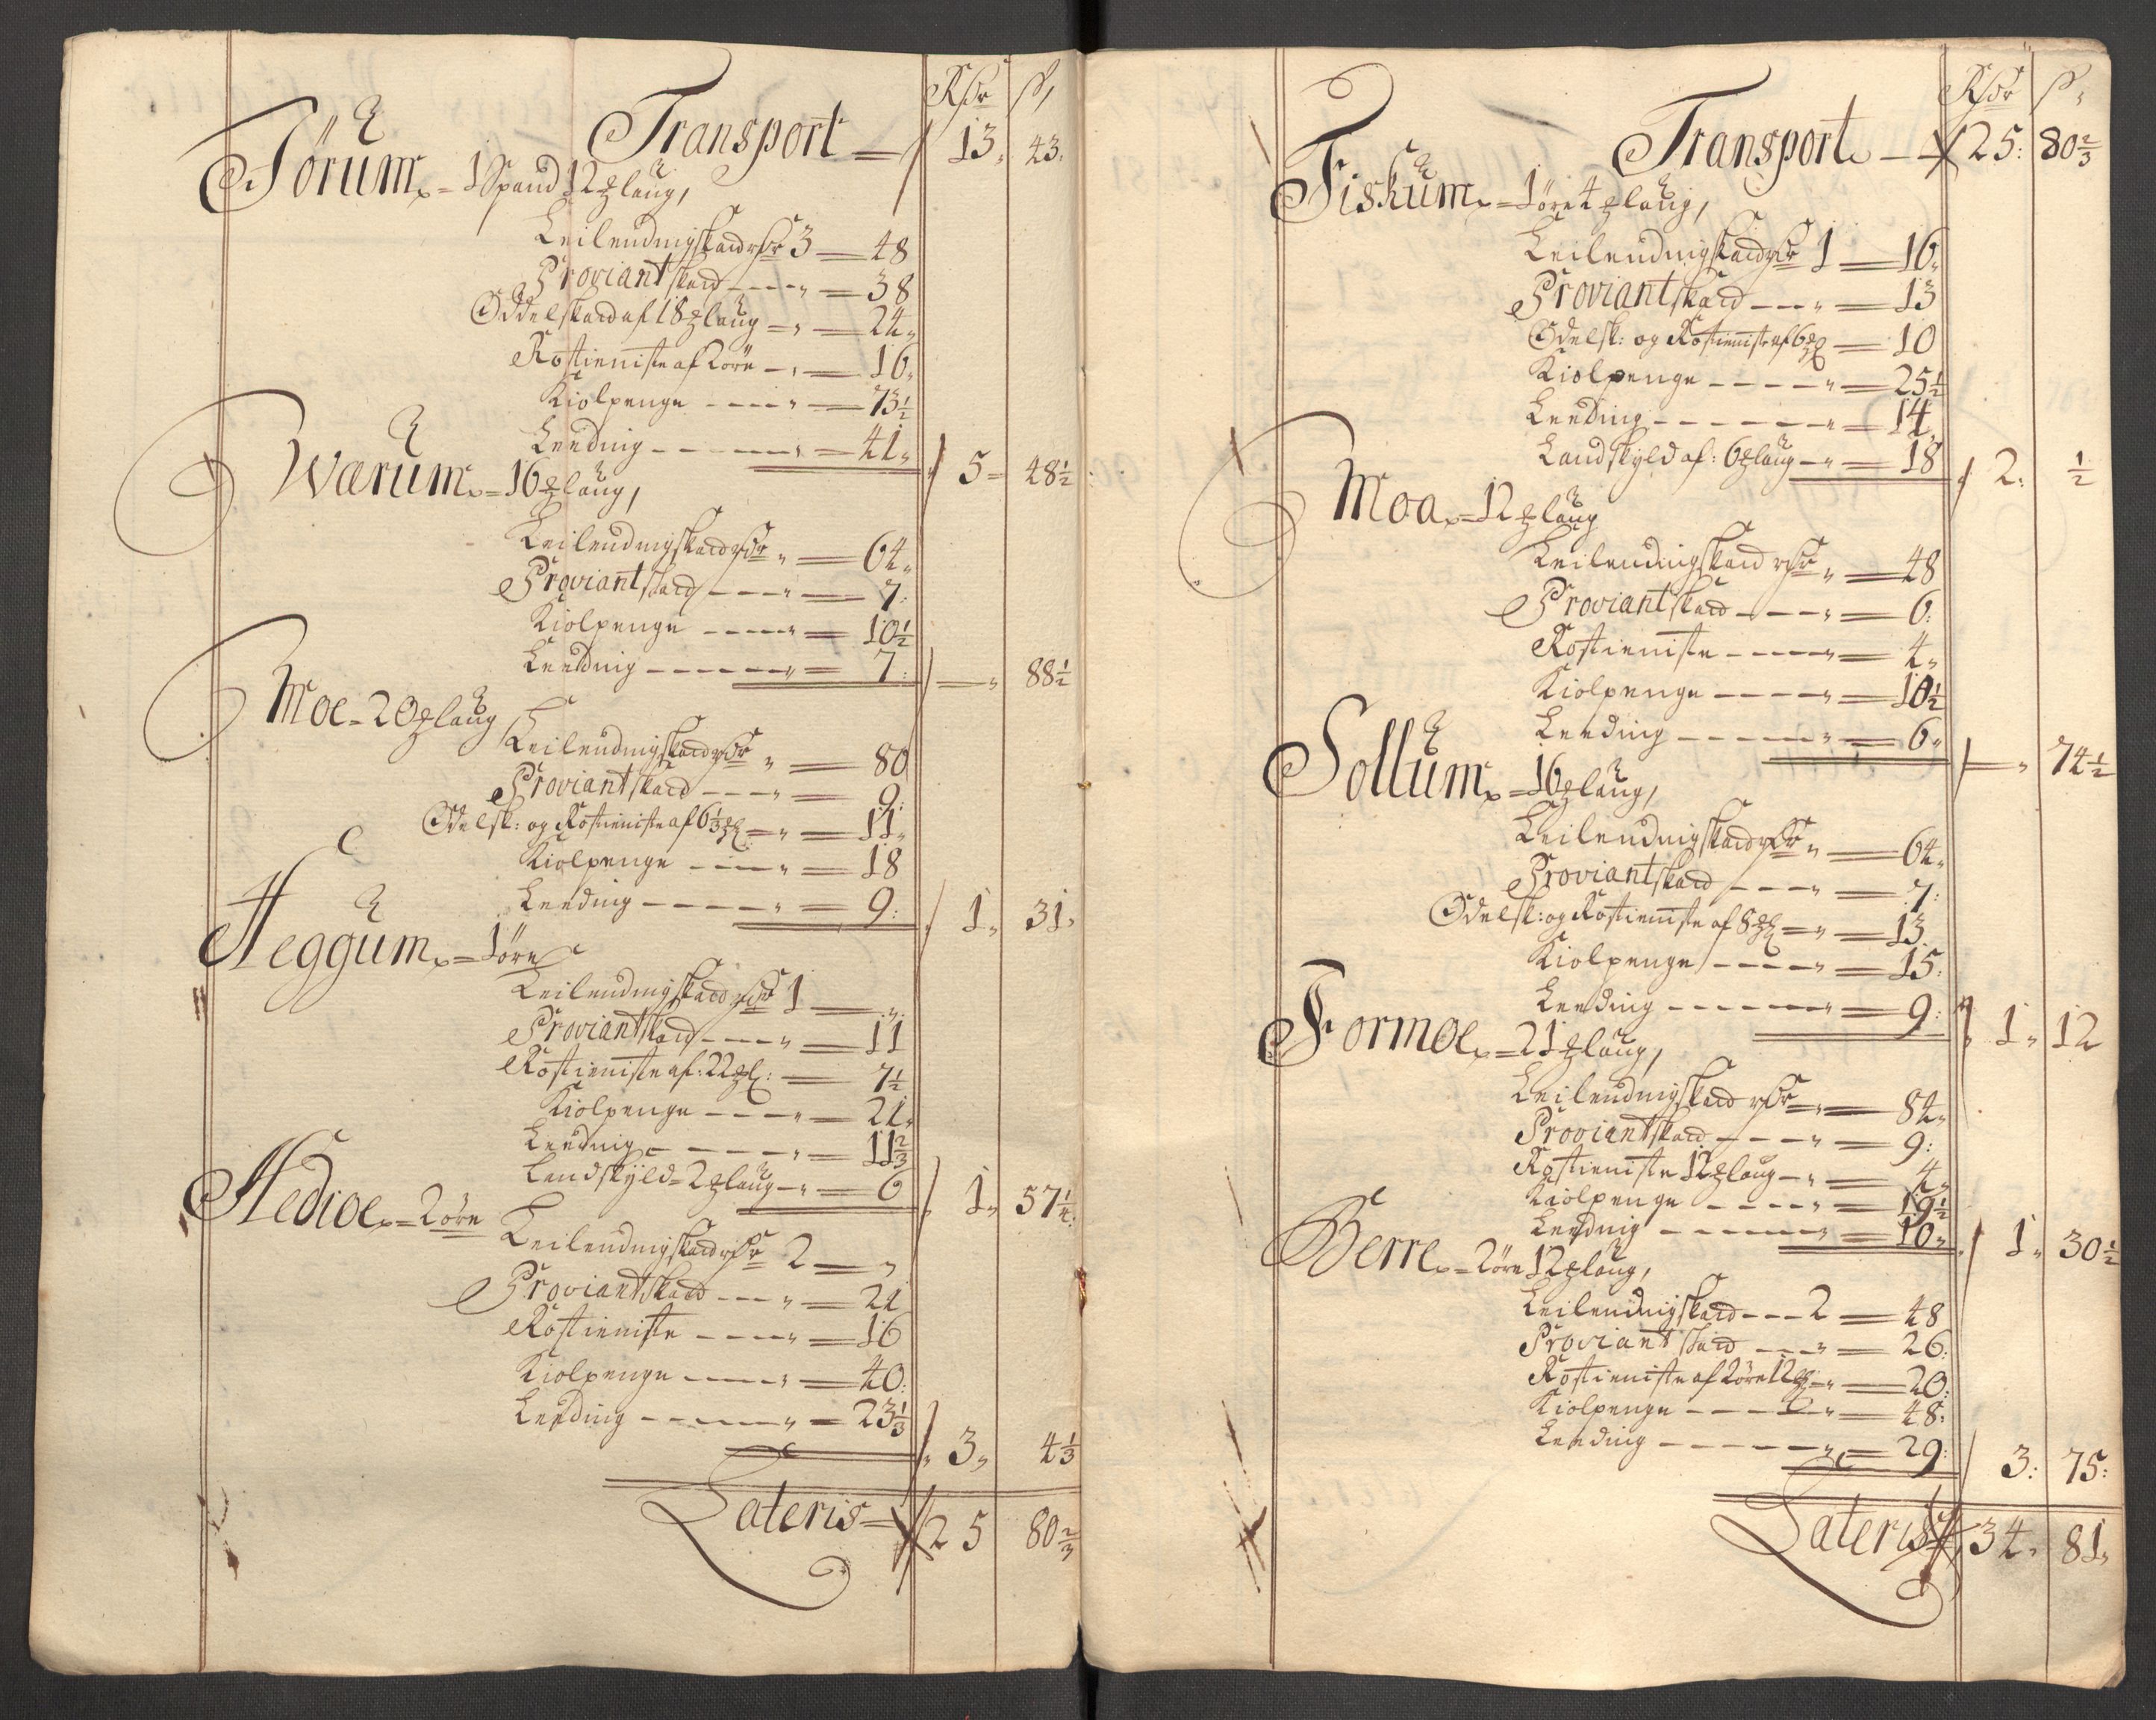 Rdr ß,
Transport = 13, 43:
Törum = 1 Spand 12 ℔ laug,
Leilendingskard rdr 3 = 48
Proviantskard ---- „ = 38
Oddelskard af 18 ℔ laug = „ = 24„
Rostieniste af 2 öre - „ = 16„
Kiolpenge ---- „ = 73½
Leeding ------ „ = 41„ 5 = 48½
Wærum = 16 ℔ laug,
Leilendingskard rdr „ = 64„
Proviantskard ---- „ = 7:
Kiolpenge ----- „ = 10½
Leeding ------ „ = 7: — „ 88½
Moe = 20 ℔ laug
Leilendingskard rdr „ = 80
Proviantskard ---- „ = 9:
Odelsk: og Rostieniste af 6⅓ ℔ = „ = 11„
Kiolpenge ---- „ = 18
Leeding ----- „ = 9: 1„ 31„
Heggum = 1 öre
Leilendingskard rdr 1 — „
Proviantskard ---- „ = 11
Rostieniste af: 22 ℔l: = 7½
Kiolpenge ---- „ = 21„
Leeding ----- „ = 11⅔
Landskyld = 2 ℔ laug - „ = 6 1„ 57¼:
Hedioe = 2 öre
Leilendingskard rdr 2 = „
Proviantskard --- „ = 21
Rostieniste ---- „ = 16
Kiolpenge ----- „ = 40:
Leeding ------ „ = 23⅓ 3„ 4⅓
Lateris = 25 80⅔
Rdr ß„
Transport - 25: 80⅔
Fiskum = 1 öre 4 ℔ laug,
Leilendingskard rdr 1 = 16„
Proviantskard --- „ = 13
Odelsk: og Rostieniste af 6 ℔ = 10
Kiolpenge ----- „ = 25½
Leeding ------ „ = 14
Landskyld af: 6 ℔ laug - „ = 18 2: ½
Moa = 12 ℔ laug
Leilendingskard rdr „ = 48
Proviantskard ---- „ = 6:
Rostieniste ----- „ = 4„
Kiolpenge ----- „ = 10½
Leeding ------ „ = 6„ — „ 74½
Sollum = 16 ℔ laug,
Leilendingskard rdr „ = 64„
Proviantskard ---- „ = 7:
Odelsk: og Rostieniste af 8 ℔ = „ = 13
Kiolpenge ----- „ = 15:
Leeding ------ „ = 9: 1„ 12
Formoe = 21 ℔ laug,
Leilendingskard rdr = „ = 84„
Proviantskard ---- „ = 9:
Rostieniste 12 ℔ laug - „ = 4„
Kiolpenge ----- „ = 19½
Leeding ------ „ = 10„ 1„ 30½
Berre = 2 öre 12 ℔ laug,
Leilendingskard --- 2 = 48
Proviantskard ---- „ = 26:
Rostieniste af 2 öre 12 ℔ = „ = 20:
Kiolpenge ----- „ = 48:
Leeding ------ „ = 29: 3: 75:
Lateris 34„ 81„